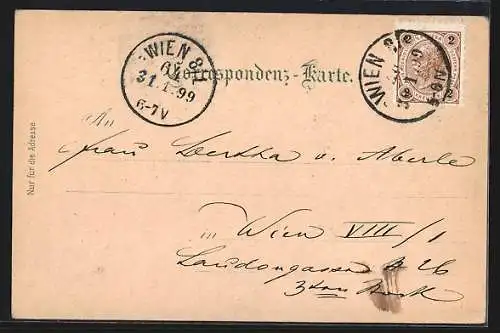 WIEN 8/1
31.1.99
6-7V
Correspondenz-Karte.
WIEN 8/1
2 2
2 2
Nur für die Adresse
An
Frau Bertha v. Aberle
in Wien VIII/1
Laudongasse № 26
3ter Stock